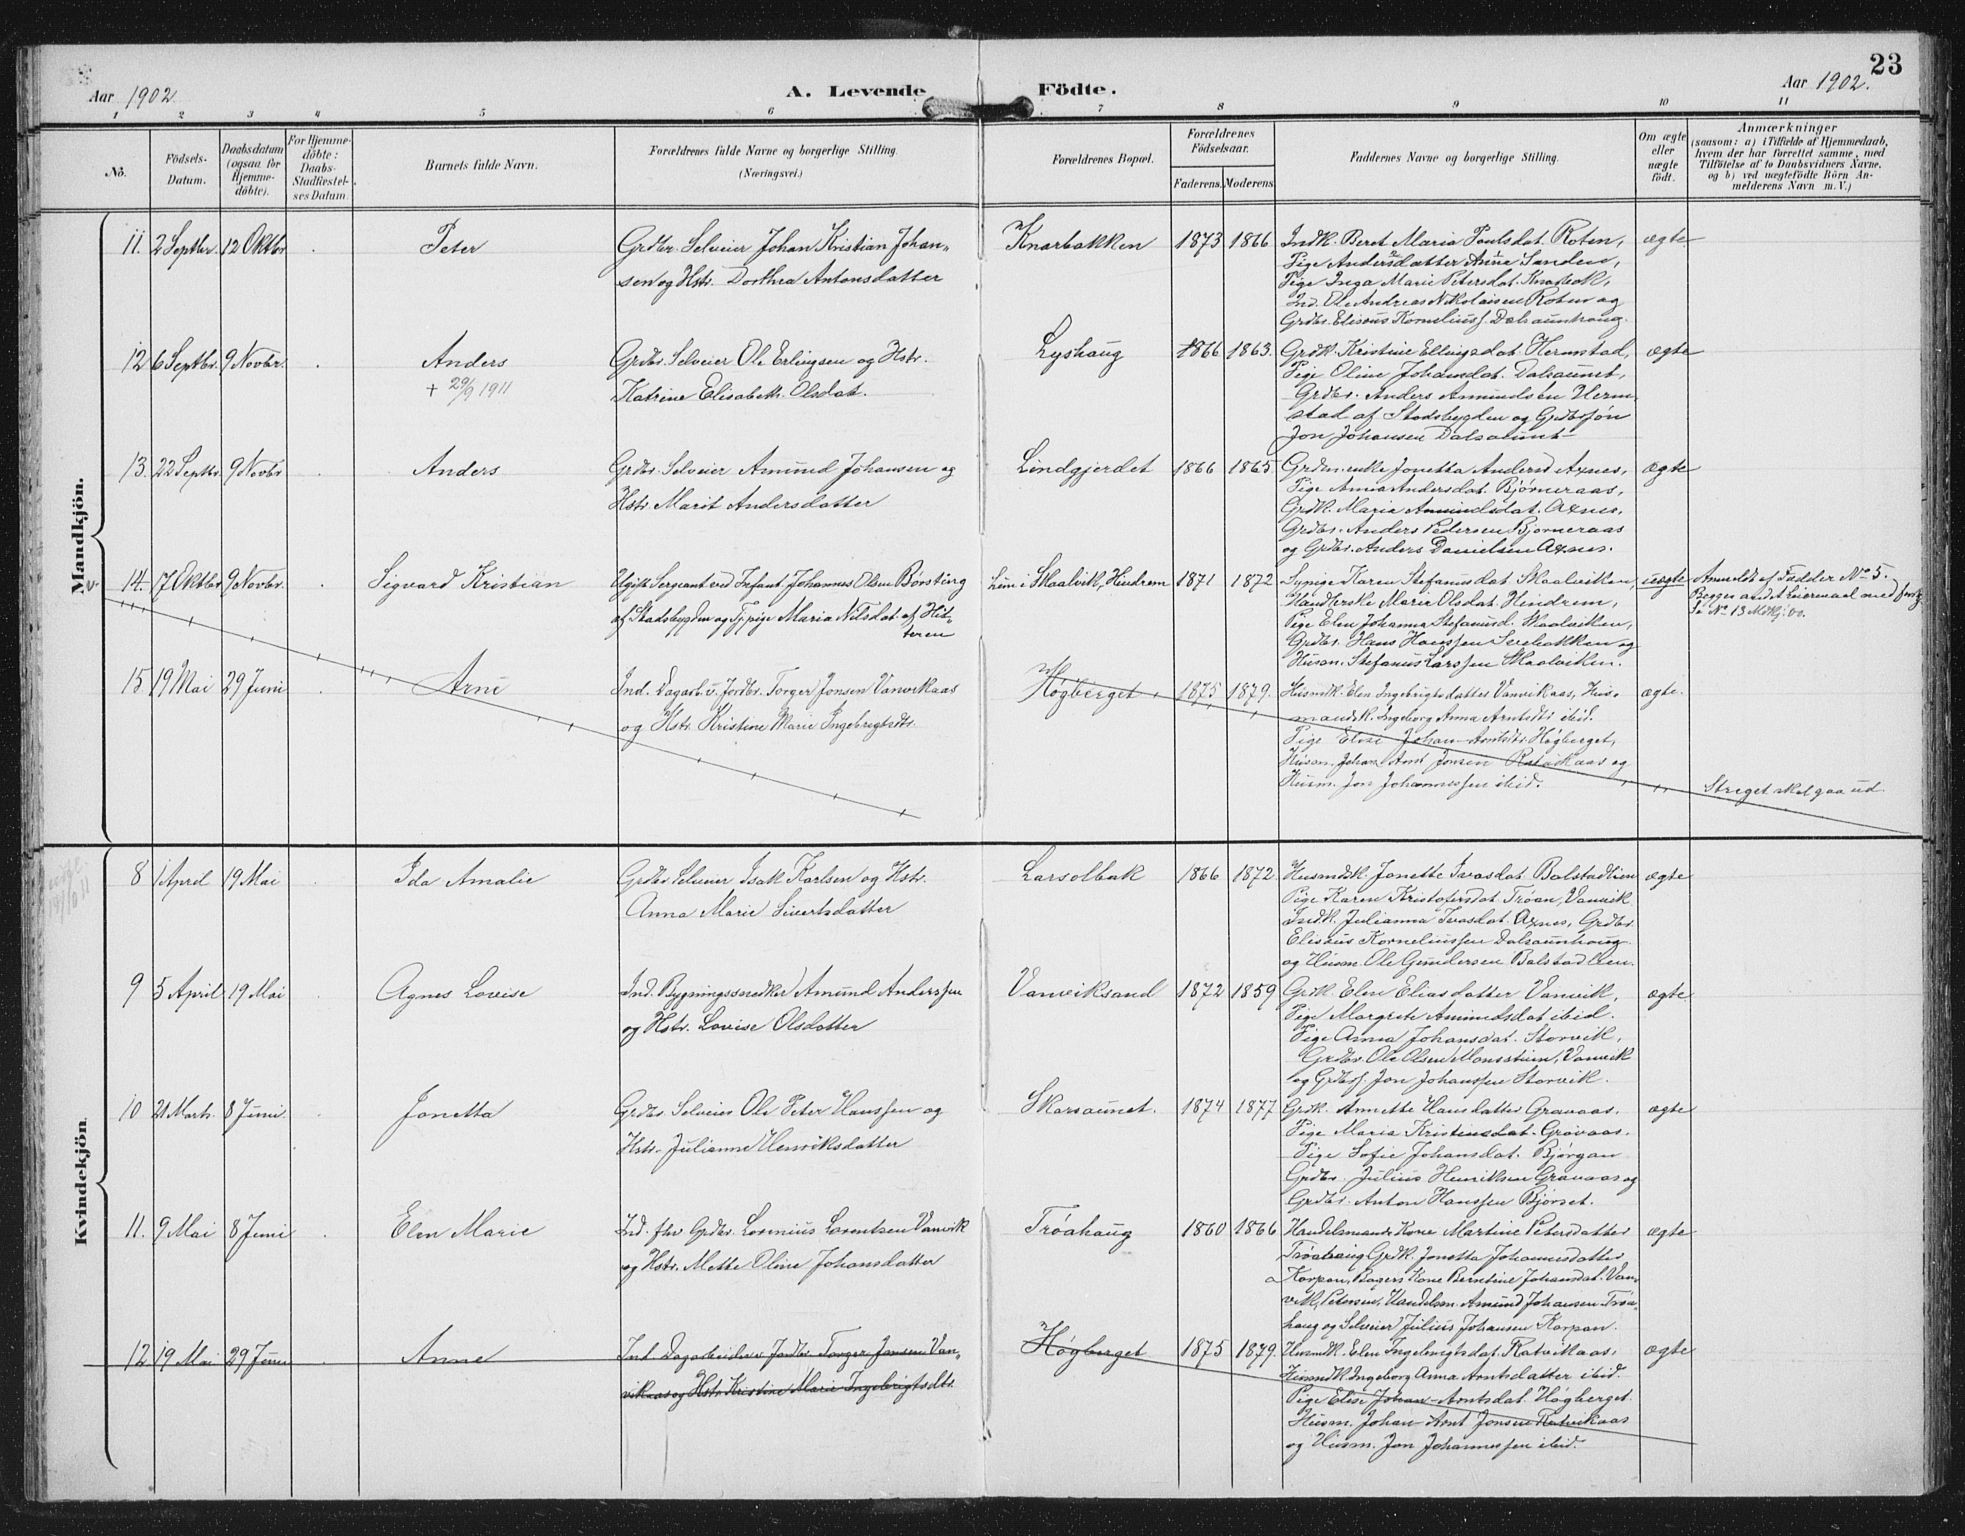 23
Aar 1902.
A. Levende Födte.
Aar 1902.
1 2 3 4 5 6 7 8 9 10 11
No.
Födsels-Datum.
Daabsdatum (ogsaa for Hjemme-döbte).
For Hjemme-döbte: Daabs-Stadfæstel-ses Datum.
Barnets fulde Navn.
Forældrenes fulde Navne og borgerlige Stilling.
(Næringsvei.)
Forældrenes Bopæl.
Forældrenes Födselsaar.
Faderens. Moderens.
Faddernes Navne og borgerlige Stilling.
Om ægte eller uægte födt.
Anmærkninger
(saasom: a) i Tilfælde af Hjemmedaab,
hvem der har forrettet samme, med
Tilföielse af to Daabsvidners Navne,
og b) ved uægtefödte Börn An-
melderens Navn m. V.)
Mandkjön.
11. 2 Septbr. 12 Oktbr. Peter
Grdbr. Selveier Johan Kristian Johan-
sen og Hstr. Dorthea Antonsdatter
Knarbakken 1873 1866
Indk. Beret Maria Paulsdat. Roten,
Pige Andersdatter Anne Sanden,
Pige Inga Marie Petersdat.
Ind. Ole Andreas Nikolaisen Roten og
Grdbr. Elisæus Korneliuss. Dalsaunhaug.
ægte
12 6 Septbr. 9 Novbr. Anders
+ 29/9 1911
Grdbr. Selveier Ole Erlingsen og Hstr.
Katrine Elisabeth Olsdat.
Lyshaug 1866 1863.
Grdk. Kristine Ellingsdat. Hermstad,
Pige Oline Johansdat. Dalsaunet,
Grdbr. Anders Amundsen Herm-
stad af Stadsbygden og Grdbrsøn
Jon Johansen Dalsaunet
ægte
13. 22 Septbr. 9 Novbr. Anders
Grdbr. Selveier Amund Johansen og
Hstr. Marit Andersdatter
Lindgjerdet 1866 1865
Grdm.enke Jonetta Andersd. Axnes,
Pige Anna Andersdat. Bjørneraas,
Grdk. Maria Amundsdat. Axnes,
Grdbr. Anders Pedersen Bjørneraas
og Grdbr. Anders Danielsen Axnes.
ægte
14. 17 Oktbr. 9 Novbr. Sigvard Kristian
Ugift Sergeant ved Infant. Johannes Olsen Børsting
af Stadsbygden og Tj.pige Maria Nilsdat. af Hit-
teren
Lien i Skaalvik, Hindrem 1871 1872
Sypige Karen Stefanusdat. Skaalviken,
Handlerske Marie Olsdat. Hindrem,
Pige Elen Johanna Stefanusd. Skaalviken,
Grdbr. Hans Hanssen Sevbakken og
Husm. Stefanus Larssen Skaalviken.
uægte
Anmeldt af Fadder No 5.
Begges andet Leiermaal med
Se No 13 Mdkj. 00.
15 19 Mai 29 Juni Arne
Ind. Dagarb. v. Jordbr. Torger Jonsen Vanvikaas
og Hstr. Kristine Marie Ingebrigtsdtr.
Høgberget 1875 1879.
Husmdk. Elen Ingebrigtsdatter Vanvikaas, Hus-
mandsk. Ingeborg Anna Arntsdtr. ibid.
Pige Elise Johan-Arntsdtr. Høgberget,
Husm. Johan Arnt Jonsen Ratvikaas og
Husm. Jon Johannessen ibid.
ægte.
Streget skal gaa ud.
Kvindekjön.
8 1 April 19 Mai Ida Amalie
Grdbr. Selveier Isak Karlsen og Hstr.
Anna Marie Sivertsdatter
Larsolbak 1866 1872.
Husmdk. Jonette Ivasdat. Balstadlien
Pige Karen Kristofersdat. Trøan, Vanvik
Indk. Julianna Ivasdat. Axnes, Grdbr.
Elisæus Korneliussen Dalsaunhaug
og Husm. Ole Gundersen Balstadlien.
ægte
9 5 April 19 Mai Agnes Lovise
Ind. Bygningssnedker Amund Anderssen
og Hstr. Lovise Olsdatter
Vanviksand 1872 1859
Grdk. Elen Eliasdatter Vanvik,
Pige Margrete Amundsdat. ibid.
Pige Anna Johansdat. Storvik,
Grdbr. Ole Olsen Monsstuen, Vanvik
og Grdbrs. Jon Johanssen Storvik.
ægte
10 21 Marts. 8 Juni. Jonetta
Grdbr. Selveier Ole Peter Hanssen og
Hstr. Julianne Henriksdatter
Skarsaunet. 1874 1877
Grdk. Annette Hansdatter Gravaas.
Pige Maria Kristinedat. Gravaas.
Pige Sofie Johansdat. Bjørgan
Grdbr. Julius Henriksen Gravaas og
Grdbr. Anton Hanssen Bjørset.
ægte
11. 9 Mai 8 Juni Elen Marie
Ind. fhv. Grdbr. Lorenius Lorentsen Vanvik
og Hstr. Mette Oline Johansdatter
Trøahaug 1860 1866
Handelsmands Kone Martine Petersdatter
Trøahaug Grdk. Jonetta Johannesdatter
Korpan, Bagers Kone Berntine Johansdat. Van-
vik, Petersen, Handelsm. Amund Johansen Trøa-
haug og Selveier Julius Johansen Korpan.
ægte
12 19 Mai 29 Juni Anne
Ind. Dagarbeider v. Jordbr. Torger Jonsen Van-
vikaas og Hstr. Kristine Marie Ingebrigtsdtr.
Høgberget 1875 1879.
Husmdk. Elen Ingebrigtsdat. Ratvikaas,
Husmdk. Ingeborg Anna Arntsdatter ibid.
Pige Elise Johan-Arntsdat. Høgberget.
Husm. Johan-Arnt Jonsen Ratvikaas
og Husm. Jon Johannessen ibid.
ægte